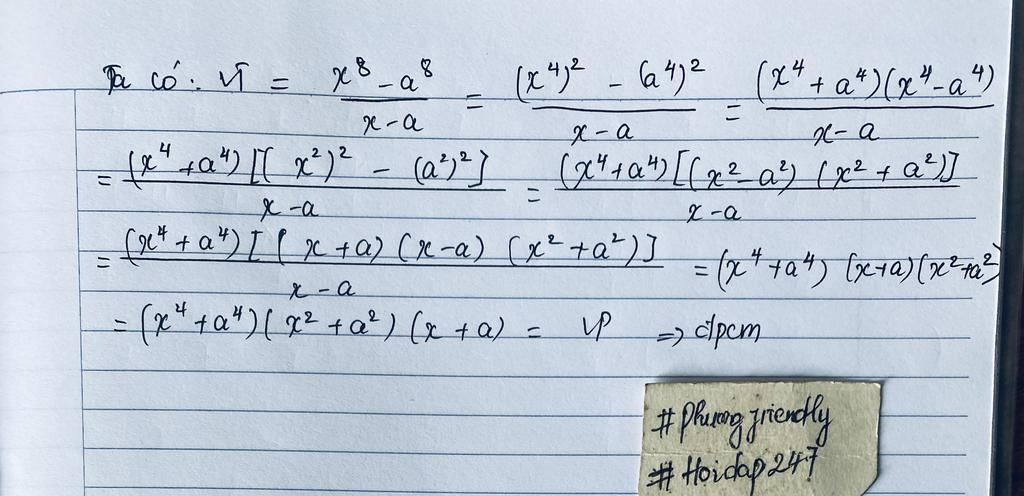 Ta có: VT = x⁸ - a⁸ / x - a = (x⁴)² - (a⁴)² / x - a = (x⁴ + a⁴)(x⁴ - a⁴) / x - a
= (x⁴ + a⁴)[(x²)² - (a²)²] / x - a = (x⁴ + a⁴)[(x² - a²)(x² + a²)] / x - a
= (x⁴ + a⁴)[(x + a)(x - a)(x² + a²)] / x - a = (x⁴ + a⁴)(x + a)(x² + a²)
= (x⁴ + a⁴)(x² + a²)(x + a) = VP => đpcm
# Phuong friendly
# Hoidap247